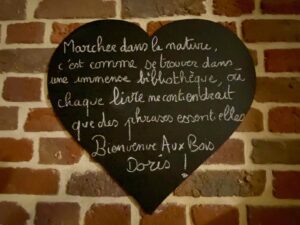 Marcher dans la nature,
c'est comme se trouver dans
une immense bibliothèque, où
chaque livre ne contiendrait
que des phrases essentielles
Bienvenue Aux Bois
Dorés !